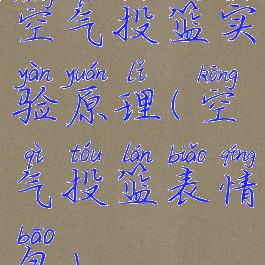 空气投篮实
yàn yuán lǐ kōng
验原理(空
qì tóu lán biǎo qíng
气投篮表情
bāo
包)